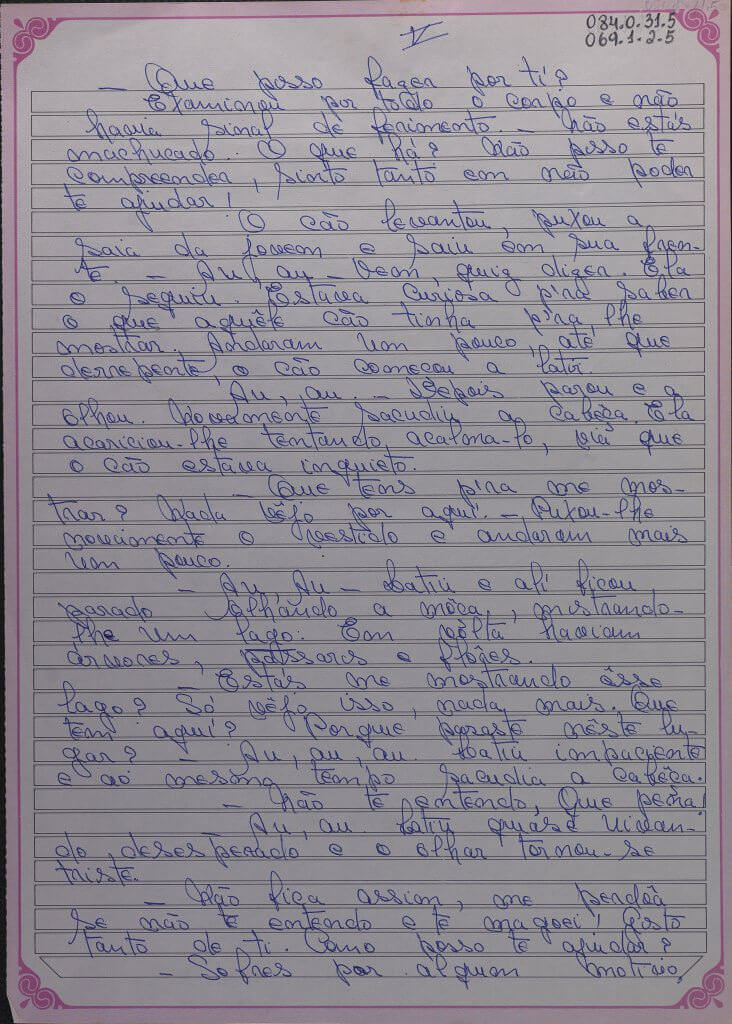 084.0.31.5
069.1-2-5
V
- Que posso fazer por ti?
Examinou por todo o corpo e não
havia sinal de ferimento. - Não estás
machucado. O que há? Não posso te
compreender, sinto tanto em não poder
te ajudar!
O cão levantou, puxou a
saia da jovem e saiu em sua fren-
te. - Au, au - Vem, quiz dizer. Ela
o seguiu. Estava curiosa p'ra saber
o que aquêle cão tinha p'ra lhe
mostrar. Andaram um pouco, até que
derrepente, o cão começou a latir.
- Au, au. - Depois parou e a
olhou. Novamente sacudiu a cabêça. Ela
acariciou-lhe tentando acalma-lo, via que
o cão estava inquieto.
- Que tens p'ra me mos-
trar? Nada vêjo por aqui. - Puxou-lhe
novamente o vestido e andaram mais
um pouco.
- Au, Au - Latiu e ali ficou
parado olhando a môça, mostrando-
lhe um lago. Em vôlta haviam
árvores, pássaros e flôres.
- Estás me mostrando êsse
lago? Só vêjo isso, nada mais. Que
tem aqui? Porque paraste nêste lu-
gar? - Au, au, au. Latiu impaciente
e ao mesmo tempo sacudia a cabêça.
- Não te entendo, Que pena!
- Au, au. Latiu quase uivan-
do, desesperado e o olhar tornou-se
triste.
- Não fica assim, me perdôa
se não te entendo e te magoei! Gosto
tanto de ti. Como posso te ajudar?
- Sofres por algum motivo,